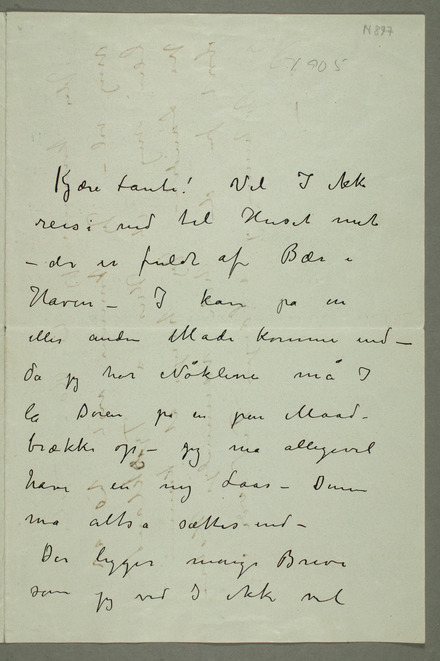 N 897
1905
Kjære Tante! Vil I ikke
reise ned til Huset mit
– der er fuldt af Bær i
Haven – I kan på en
eller anden Måde komme ind –
da jeg har Nøklene må I
la Døren på en pen Maade
brække op – jeg må alligevel
have en ny Laas – Denne
må altså sættes ind –
Der ligger mange Breve
som jeg ved I ikke vil